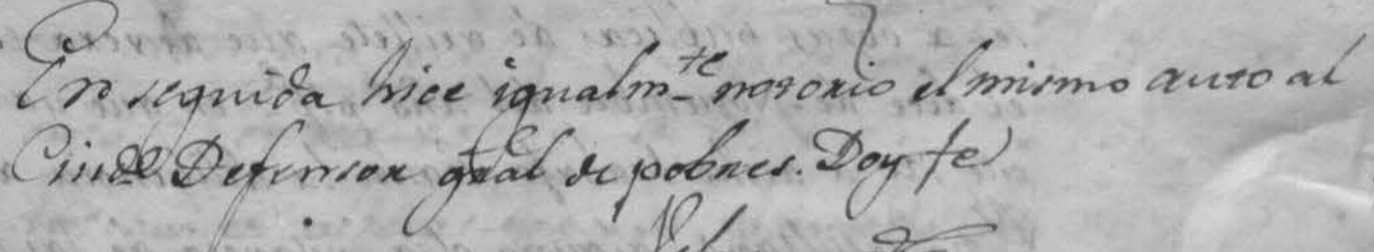 En seguida hice igualm.te notorio el mismo auto al
Ciud.e Defensor gral de pobres. Doy fe